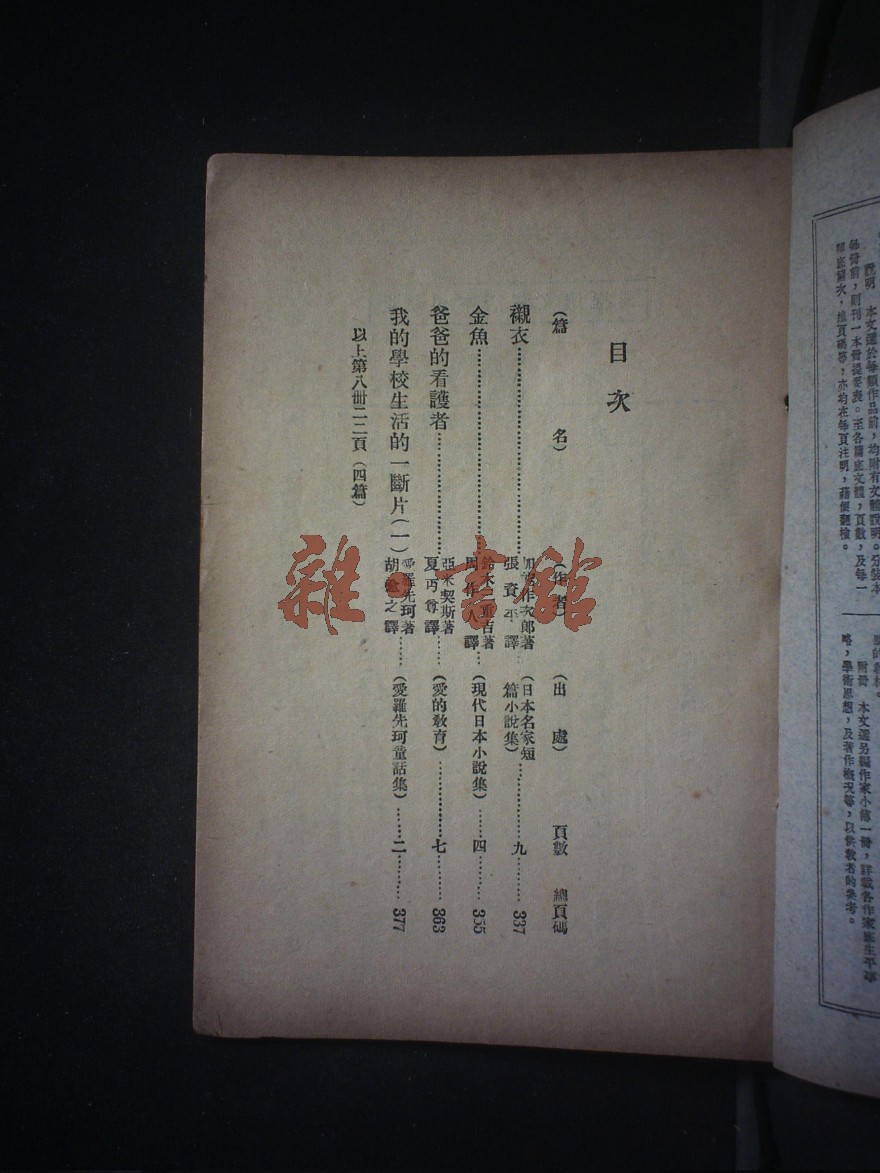 目次
(篇名) (作者) (出處) 頁數 總頁碼
襯衣 作次郎著 張資平譯 (日本名家短篇小說集) 九 337
金魚 鈴木 吉著 周作人譯 (現代日本小說集) 四 355
爸爸的看護者 亞米契斯著 夏丏尊譯 (愛的教育) 七 363
我的學校生活的一斷片(一) 愛羅先珂著 胡愈之譯 (愛羅先珂童話集) 二 377
以上第八冊二二頁(四篇)
雜·書館
說明 本文選於每類作品前,均附有文體說明。分裝本
每冊前,則刊一本冊提要表。至各篇底文體,頁數,及每一
篇次,總頁碼等,亦均在每頁注明,藉便翻檢。
附冊 本文選另編作家小傳一冊,詳載各作家底生平事
略,學術思想,及著作概況等,以供教者的參考。